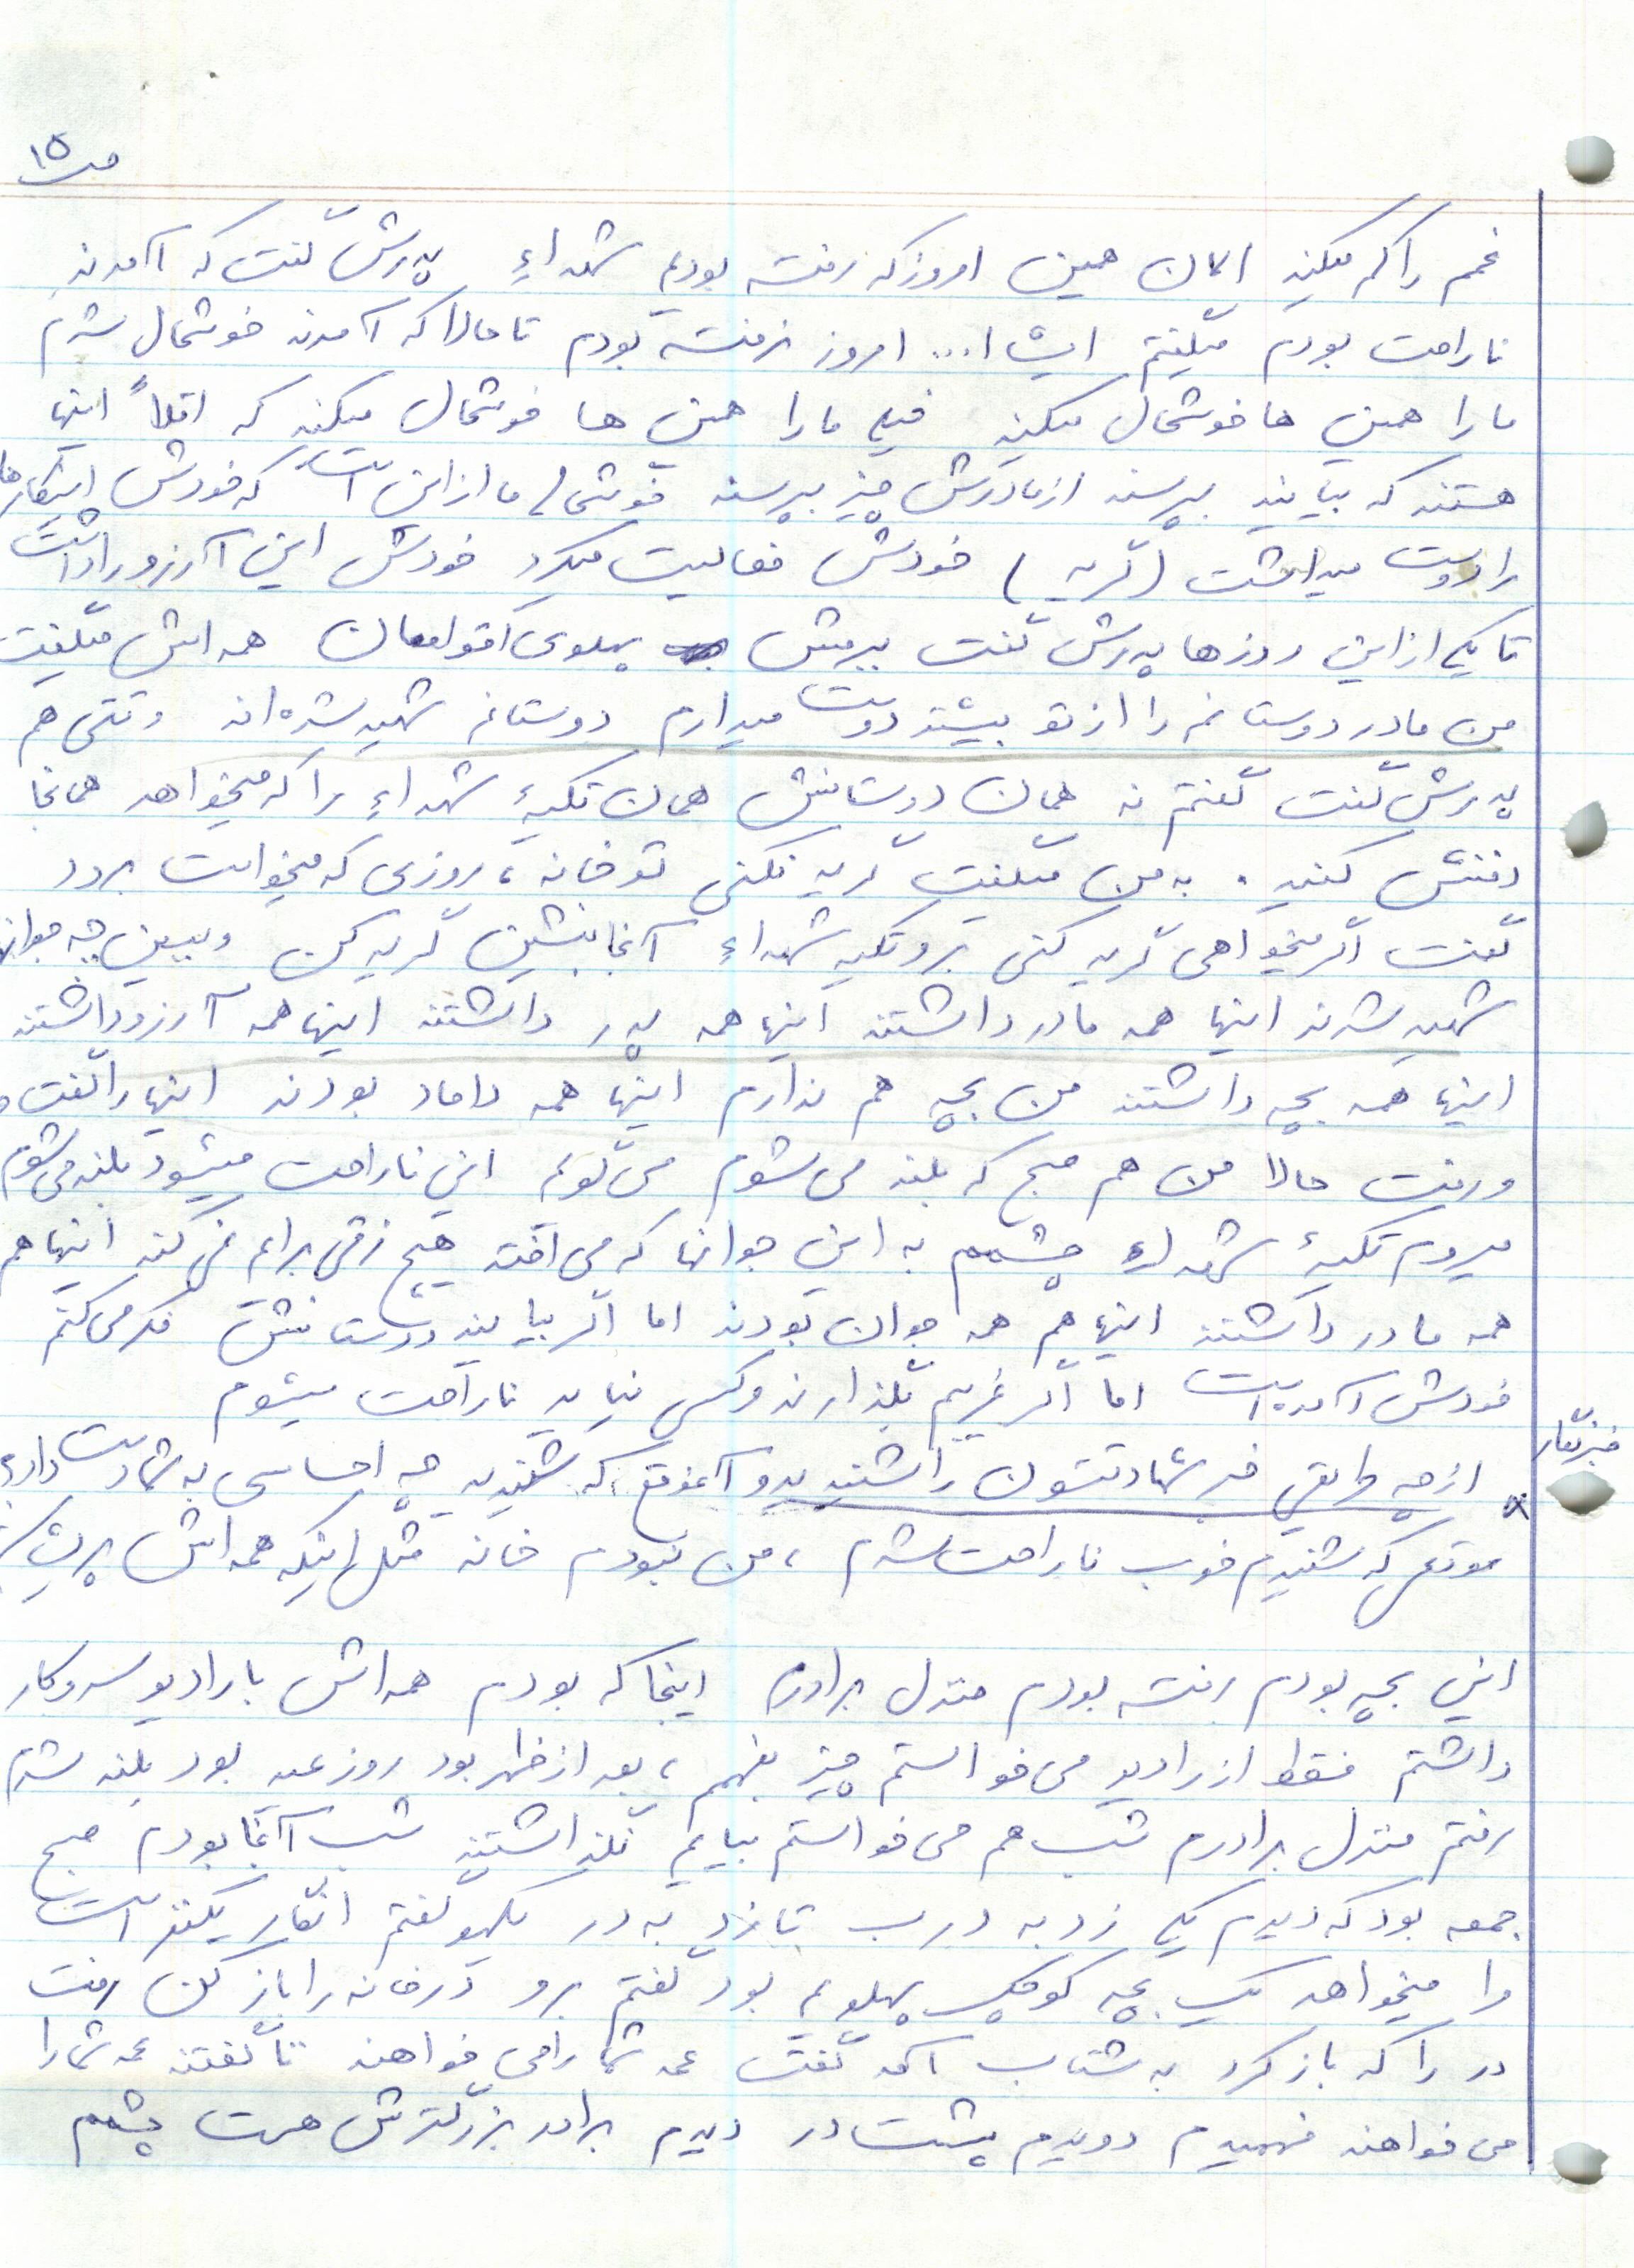 ص ۱۵
غمم را کم میکنند الان همین امروز که رفته بودیم شهداء پدرش گفت که آمدند
ناراحت بودم میگفتم ایشا... امروز نرفته بودم تا حالا که آمدند خوشحال شدم
ما را همین ها خوشحال میکنند خیلی ما را همین ها خوشحال میکند که اقلاً اینها
هستند که بیایند بپرسند از مادرش چیز بپرسند خوشحالی ما از این است که خودش اینکارها
را دوست میداشت (گریه) خودش فعالیت میکرد خودش این آرزو را داشت
تا یکی از این روزها پدرش گفت ببرمش پهلوی اقوامان همه اش میگفت
من مادر دوستانم را از تو بیشتر دوست میدارم دوستانم شهید شده اند وقتی هم
پدرش گفت گفتم نه همان دوستانش همان تکیهٔ شهداء را که میخواهد همانجا
دفنش کنید. به من میگفت گریه نکنی تو خانه، روزی که میخواست برود
گفت اگر میخواهی گریه کنی برو تکیه شهداء آنجا بنشین گریه کن و ببین چه جوانها
شهید شدند اینها همه مادر داشتند اینها همه پدر داشتند اینها همه آرزو داشتند
اینها همه بچه داشتند من بچه هم ندارم اینها همه داماد بودند اینها را گفت و
و رفت حالا من هم صبح که بلند می شوم می گویم این ناراحت میشود بلند می شوم
میروم تکیهٔ شهداء چشمم به این جوانها که می افتد هیچ فرقی برایم نمی کند اینها هم
همه مادر داشتند اینها هم همه جوان بودند اما اگر بیایند دوستانش فکر می کنم
خودش آمده است اما اگر غریبم بگذارند و کسی نیاید ناراحت میشوم
خبرنگار
از چه طریقی خبر شهادتشون را شنیدید و آنموقع که شنیدید چه احساسی به شما دست داد؟
موقعی که شنیدم خوب ناراحت شدم، من نبودم خانه مثل اینکه همه اش
این بچه بودم رفته بودم منزل برادرم اینجا که بودم همه اش با رادیو سروکار
داشتم فقط از رادیو می خواستم چیز بفهمم، بعد از ظهر بود روز عید بود بلند شدم
رفتم منزل برادرم شب هم می خواستم بیایم نگذاشتند شب آنجا بودم صبح
جمعه بود که دیدم یکی زد به درب تا زد به در یکهو گفتم انگار یکنفر است
مرا میخواهد یک بچه کوچک پهلویم بود گفتم برو درخانه را باز کن رفت
در را که باز کرد به شتاب آمد گفت عمه شما را می خواهند تا گفتند عمه شما را
می خواهند فهمیدم دویدم پشت در دیدم برادر بزرگترش هست چشمم